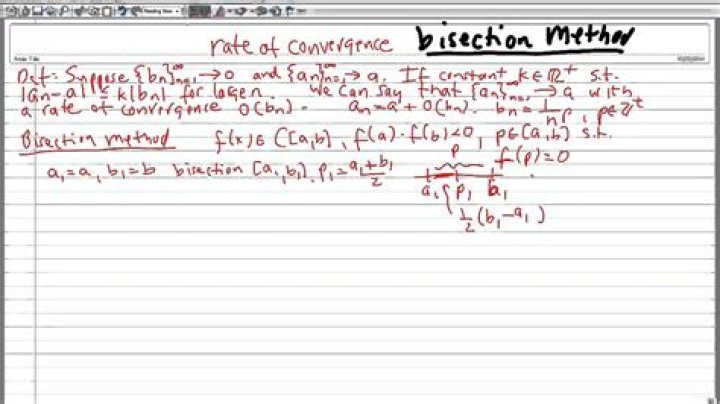 rate of convergence bisection Method
Def: Suppose {bn}∞n=1 → 0 and {an}∞n=1 → a. If constant k ∈ R+ s.t.
|an-a| ≤ k|bn| for large n. We can say that {an}∞n=1 → a with
a rate of convergence O(bn). an = a + O(bn). bn = 1/nP, p∈Z+
Bisection method f(x) ∈ C[a,b], f(a)·f(b)<0, p∈[a,b] s.t.
p f(p)=0
a1=a, b1=b bisection [a1,b1]. p1=a1+b1/2
a1 p1 b1
1/2(b1-a1)